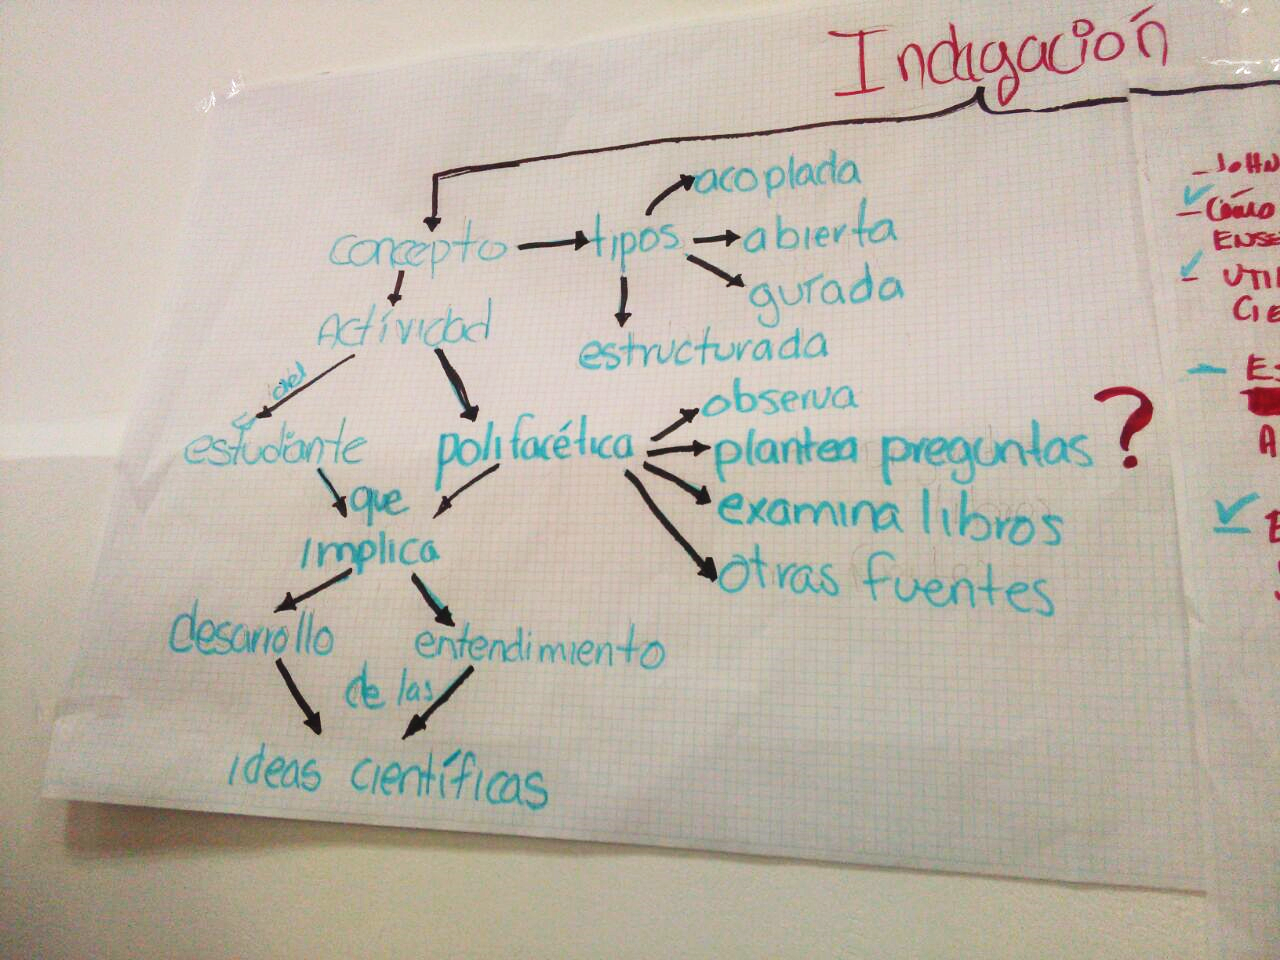 Indagación
concepto
tipos
acoplada
abierta
gurada
estructurada
Actividad
del
estudiante
polifacética
observa
plantea preguntas ?
examina libros
otras fuentes
que
implica
desarrollo
entendimiento
de las
ideas científicas
- JOHN
- Cómo
ENSE
- UTI
CIE
- ES
A
E